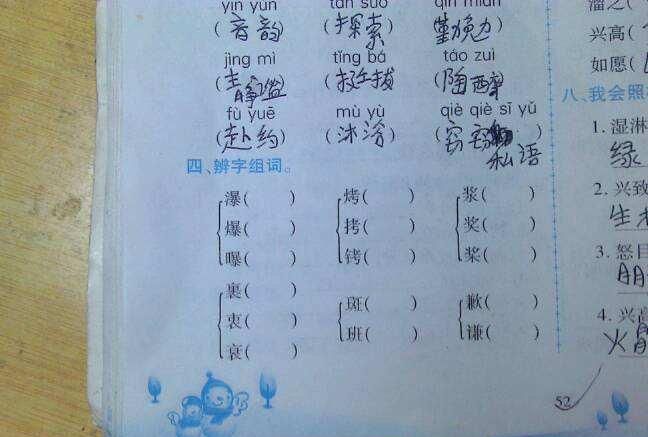 yīn yùn tàn suǒ qín miǎn
(音韵) (探索) (勤勉)
jìng mì tǐng bá táo zuì
(静谧) (挺拔) (陶醉)
fù yuē mù yù qiè qiè sī yǔ
(赴约) (沐浴) (窃窃私语)
四、辨字组词。
瀑( ) 烤( ) 浆( )
爆( ) 拷( ) 奖( )
曝( ) 铐( ) 桨( )
裹( ) 斑( ) 歉( )
衷( ) 班( ) 谦( )
衰( )
52
溜之(
兴高(
如愿(
八、我会照
1. 湿淋
绿
2. 兴致
生
3. 怒目
4. 兴高
火